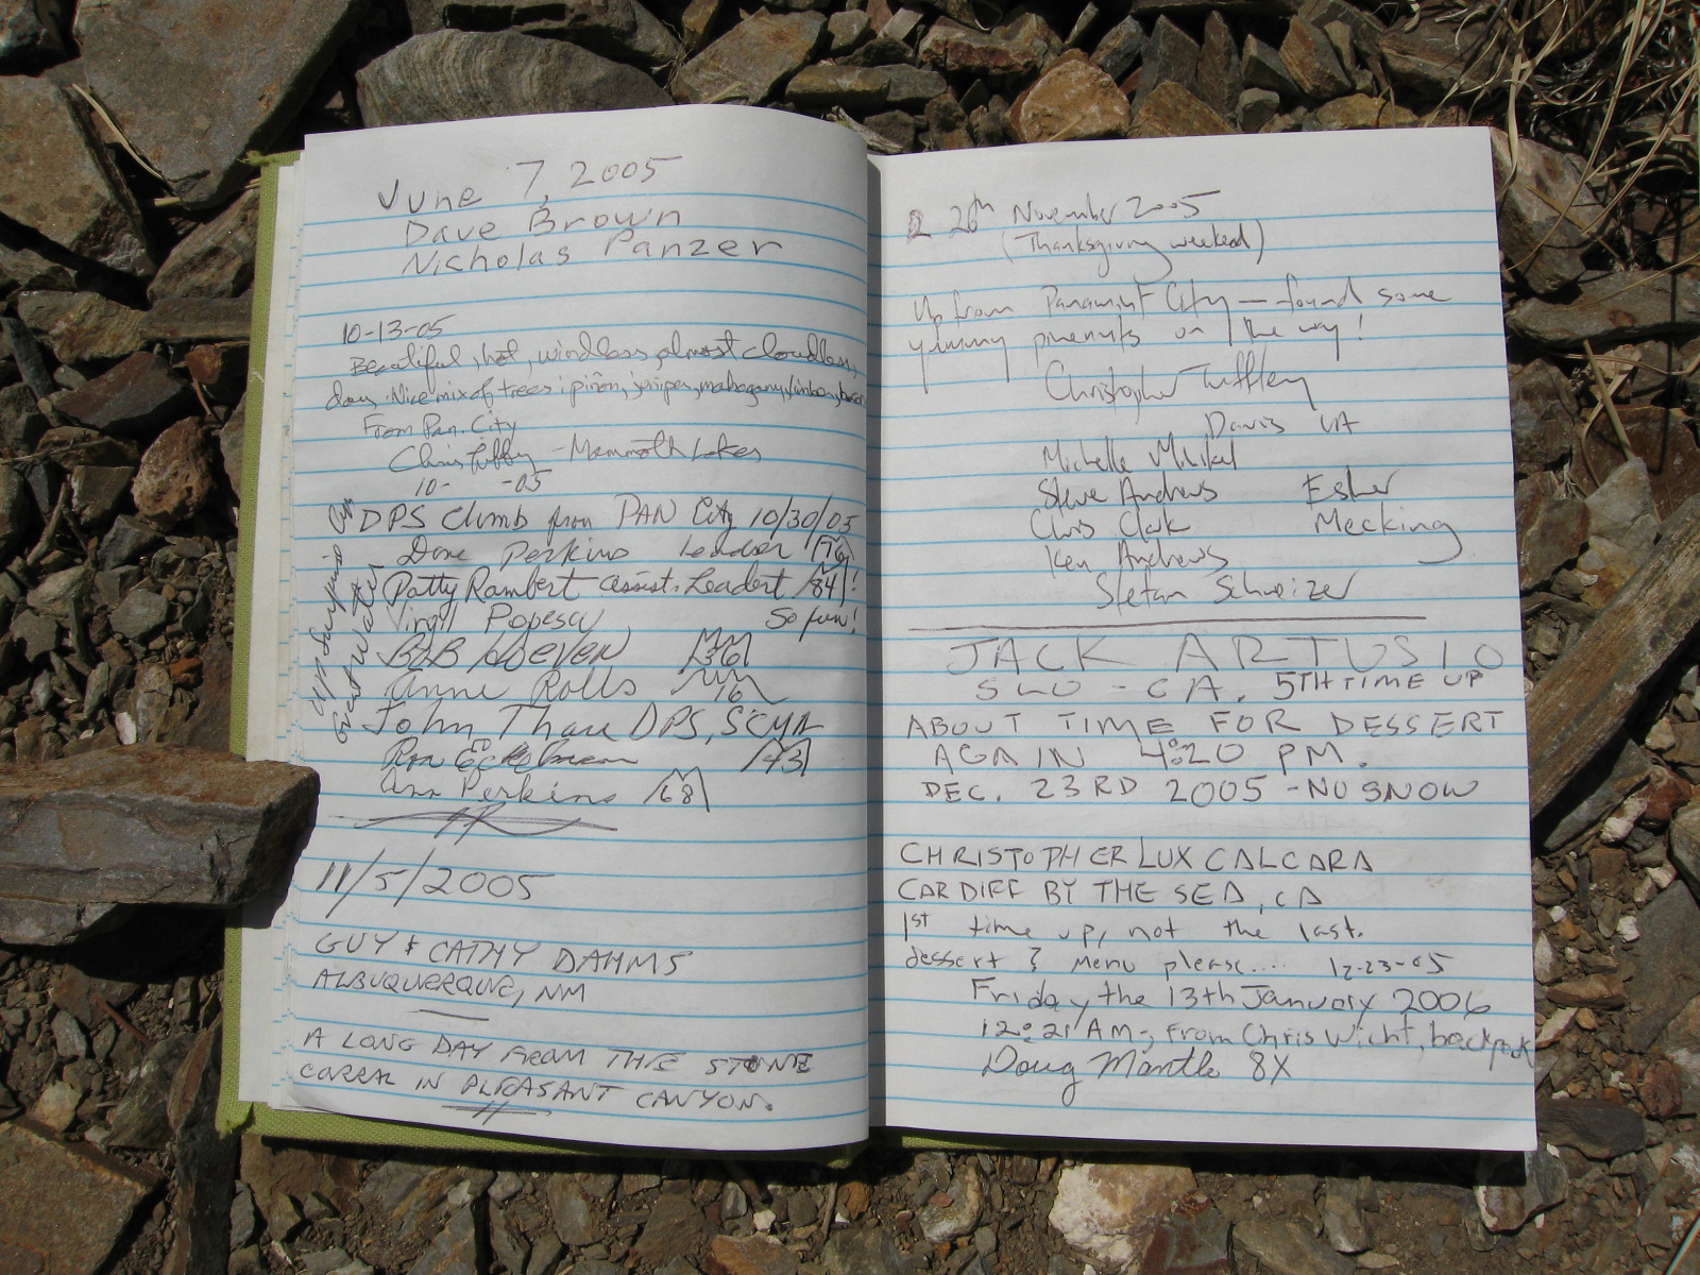 June 7, 2005
Dave Brown
Nicholas Panzer
10-13-05
Beautiful, hot, windless, almost cloudless,
day. Nice mix of trees: piñon, juniper, mahogany, limber,
From Pan. City
Chris - Mammoth Lakes
10- -05
DPS Climb from PAN City 10/30/05
Dave Perkins Leader 76
Patty Rambert assist. Leadert 84!
Virgil Popescu So fun!
BOB HOEVEN 36
Anne Rolls 16
John Thau DPS, SCMA
Ron Eckelmann 43
Ann Perkins 68
11/5/2005
GUY & CATHY DAHMS
ALBUQUERQUE, NM
A LONG DAY FROM THE STONE
CORRAL IN PLEASANT CANYON.
26th November 2005
(Thanksgiving weekend)
Up from Panamint City — found some
yummy pinenuts on the way!
Christopher Tuffley
Davis CA
Michelle
Steve Andrews Esher
Chris Clark Mecking
Ken Andrews
Stefan Schweizer
JACK ARTUSIO
SLO - CA. 5TH TIME UP
ABOUT TIME FOR DESSERT
AGAIN 4:20 PM.
DEC. 23RD 2005 - NO SNOW
CHRISTOPHER LUX CALCARA
CARDIFF BY THE SEA, CA
1st time up, not the last.
dessert menu please.... 12-23-05
Friday the 13th January 2006
12:21 AM; From Chris Wicht, backpack
Doug Mantle 8X